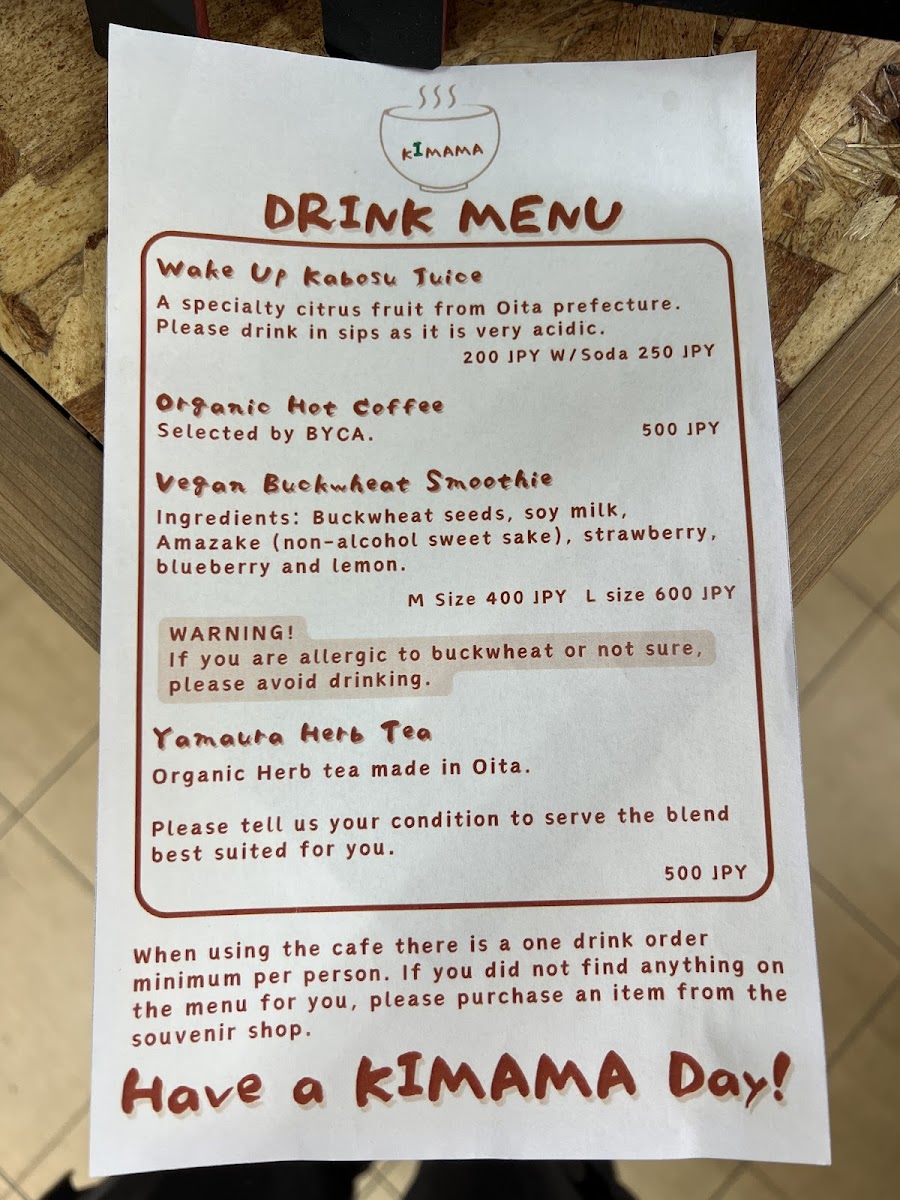 KIMAMA
DRINK MENU
Wake Up Kabosu Juice
A specialty citrus fruit from Oita prefecture.
Please drink in sips as it is very acidic.
200 JPY W/Soda 250 JPY
Organic Hot Coffee
Selected by BYCA.
500 JPY
Vegan Buckwheat Smoothie
Ingredients: Buckwheat seeds, soy milk,
Amazake (non-alcohol sweet sake), strawberry,
blueberry and lemon.
M Size 400 JPY L size 600 JPY
WARNING!
If you are allergic to buckwheat or not sure,
please avoid drinking.
Yamaura Herb Tea
Organic Herb tea made in Oita.
Please tell us your condition to serve the blend
best suited for you.
500 JPY
When using the cafe there is a one drink order
minimum per person. If you did not find anything on
the menu for you, please purchase an item from the
souvenir shop.
Have a KIMAMA Day!